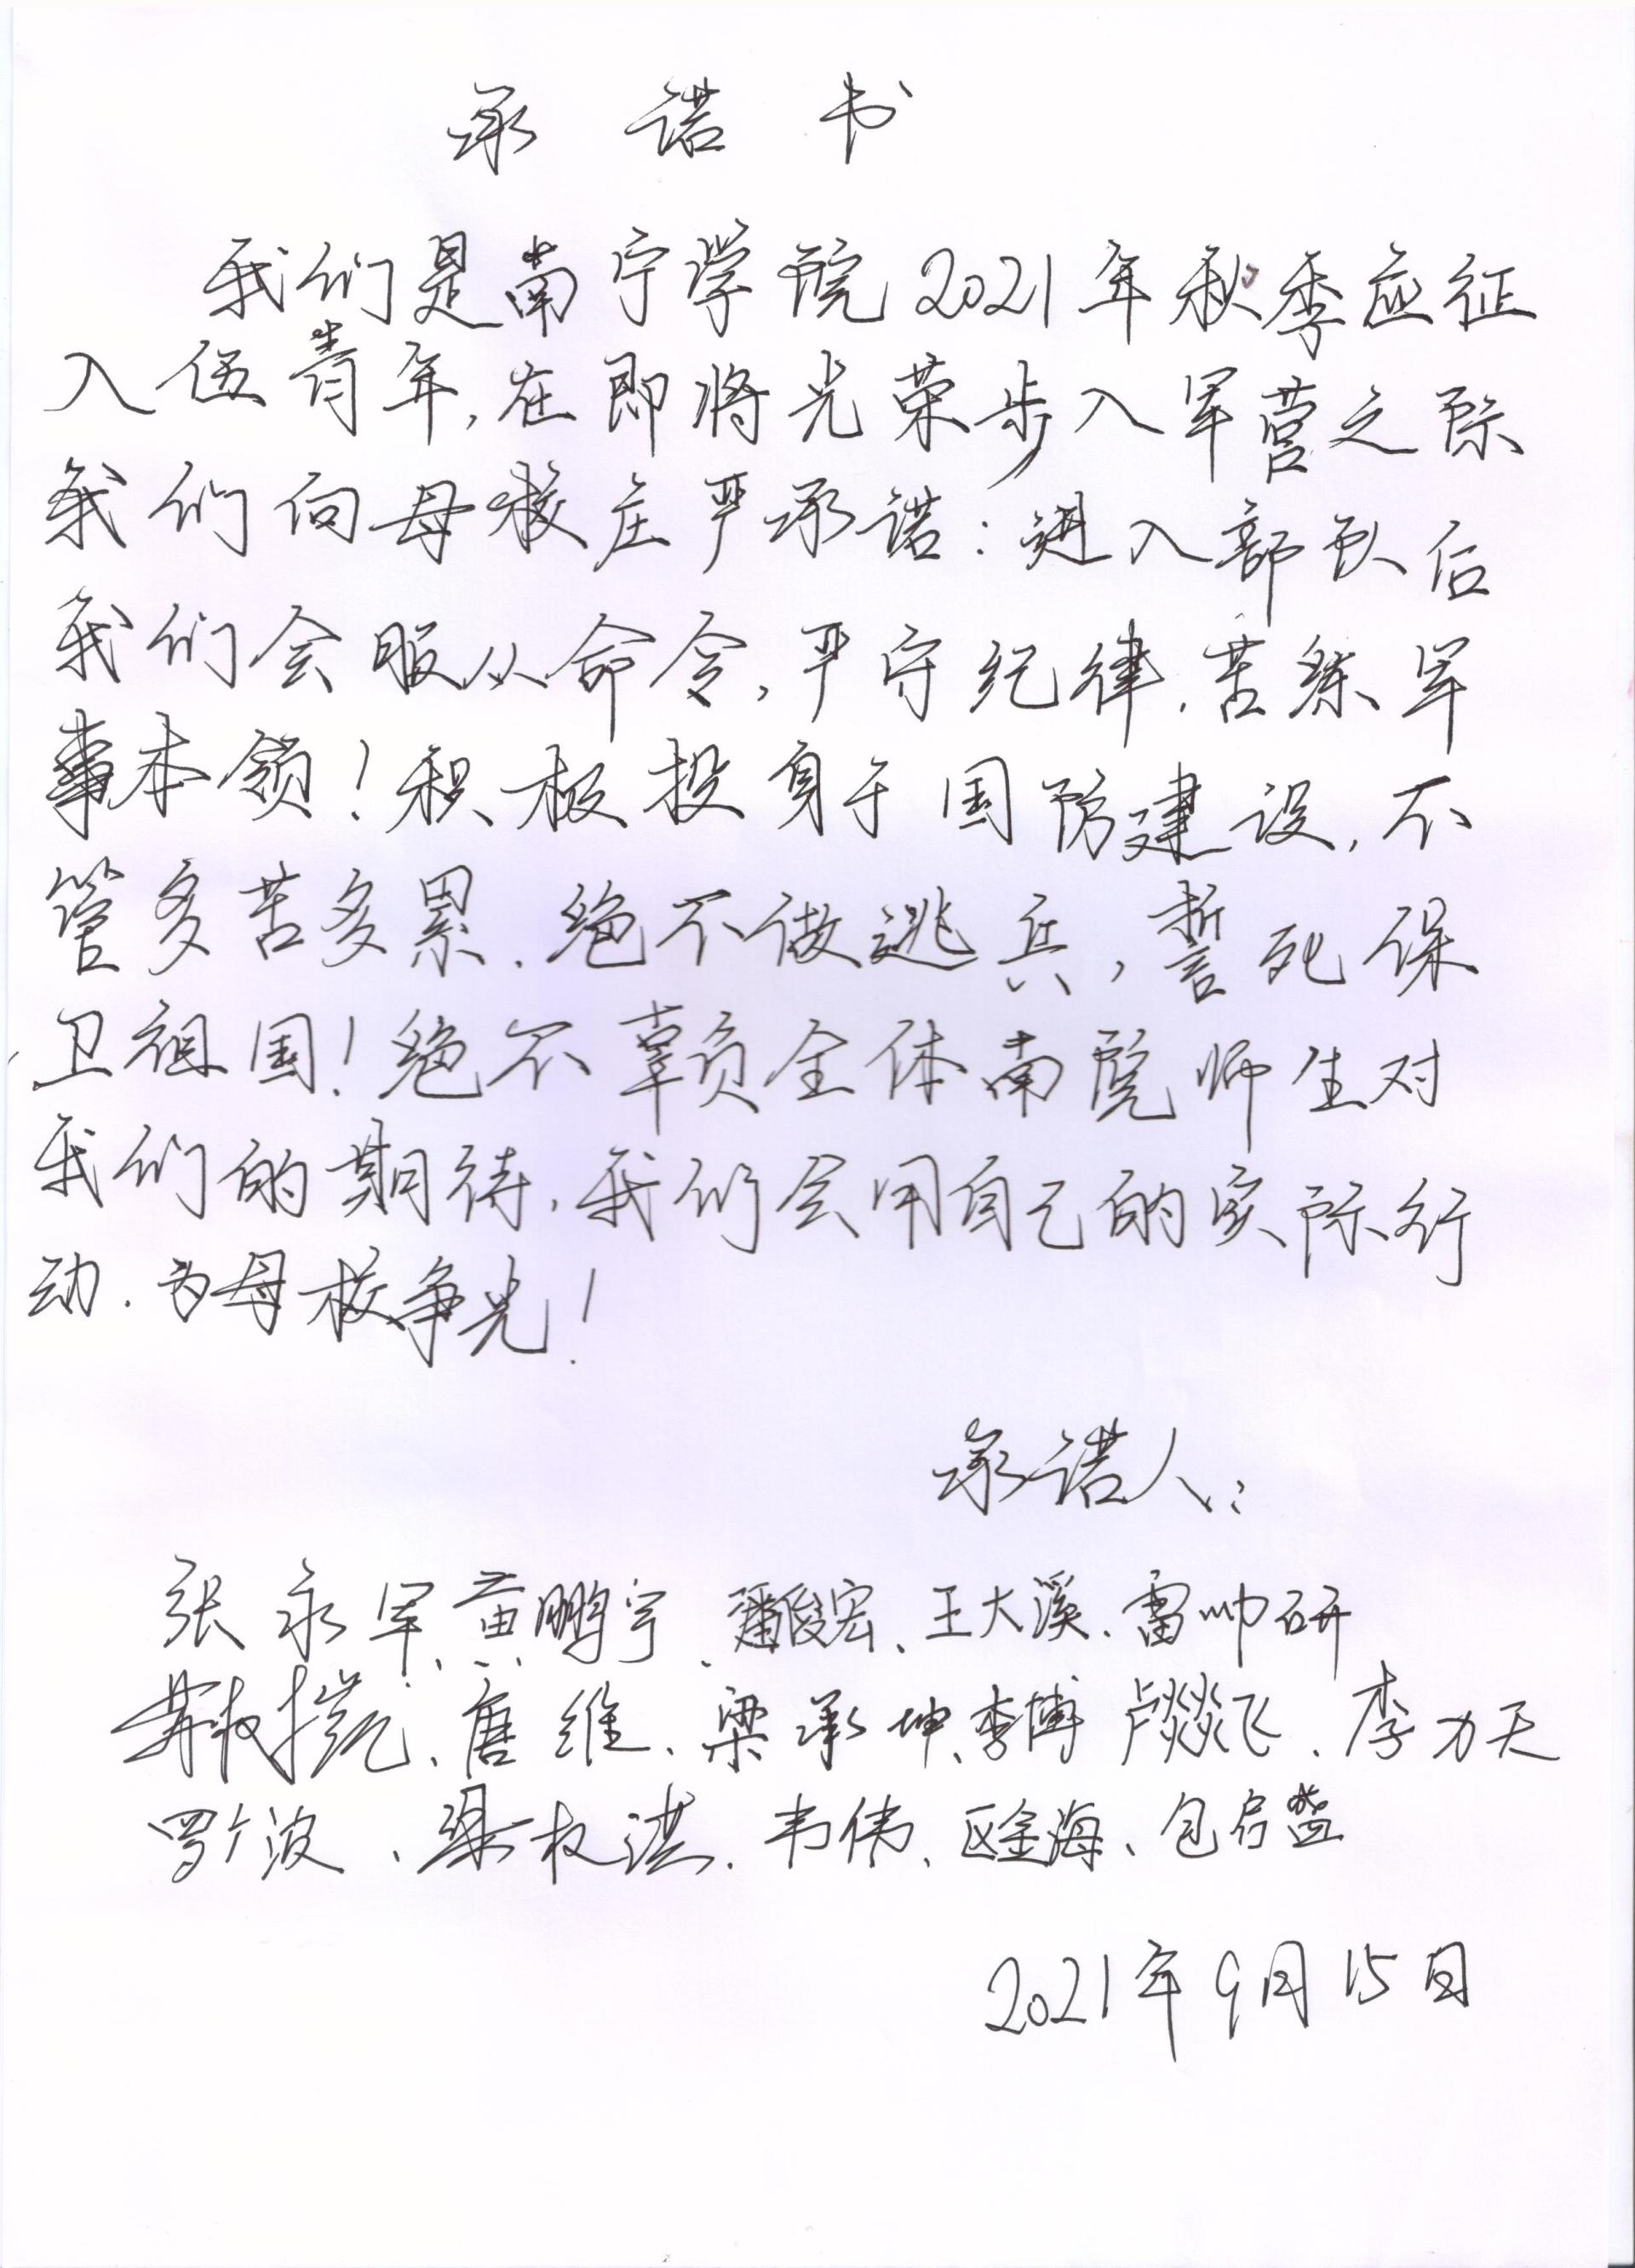 承诺书
我们是南宁学院2021年秋季应征
入伍青年,在即将光荣步入军营之际
我们向母校庄严承诺:进入部队后
我们会服从命令,严守纪律,苦练军
事本领!积极投身于国防建设,不
管多苦多累,绝不做逃兵,誓死保
卫祖国!绝不辜负全体南院师生对
我们的期待,我们会用自己的实际行
动,为母校争光!
承诺人:
张永军、黄鹏宇、潘俊宏、王大溪、雷帅研
唐维、梁承坤、李博 卢燚飞、李力天
罗广波、梁权洪、韦伟、区金海、包启盐
2021年9月15日